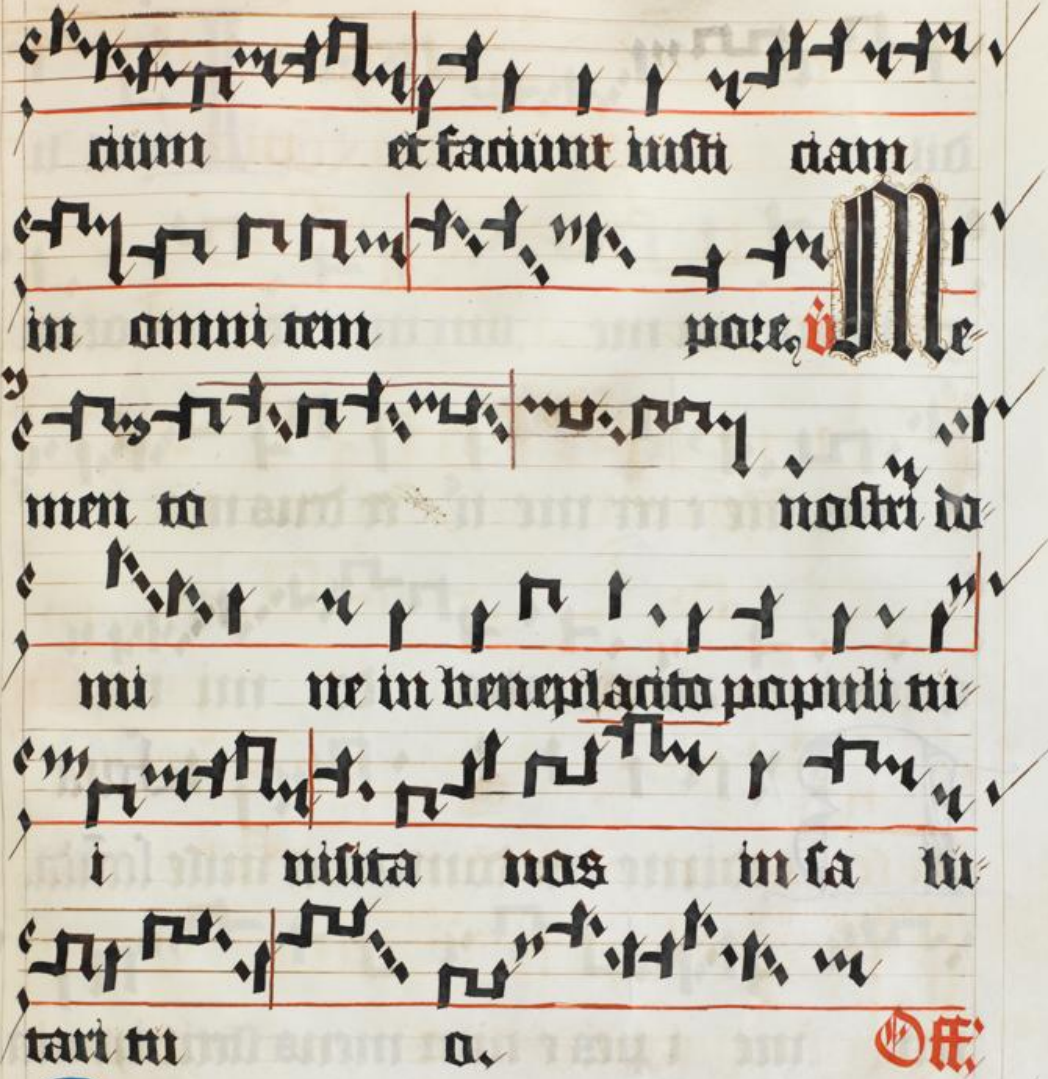 cium et faciunt iusti ciam
in omni tem pore, v̇ Me-
men to nostri do-
mi ne in beneplacito populi tu-
i visita nos in sa lu-
tari tu o.
Off: